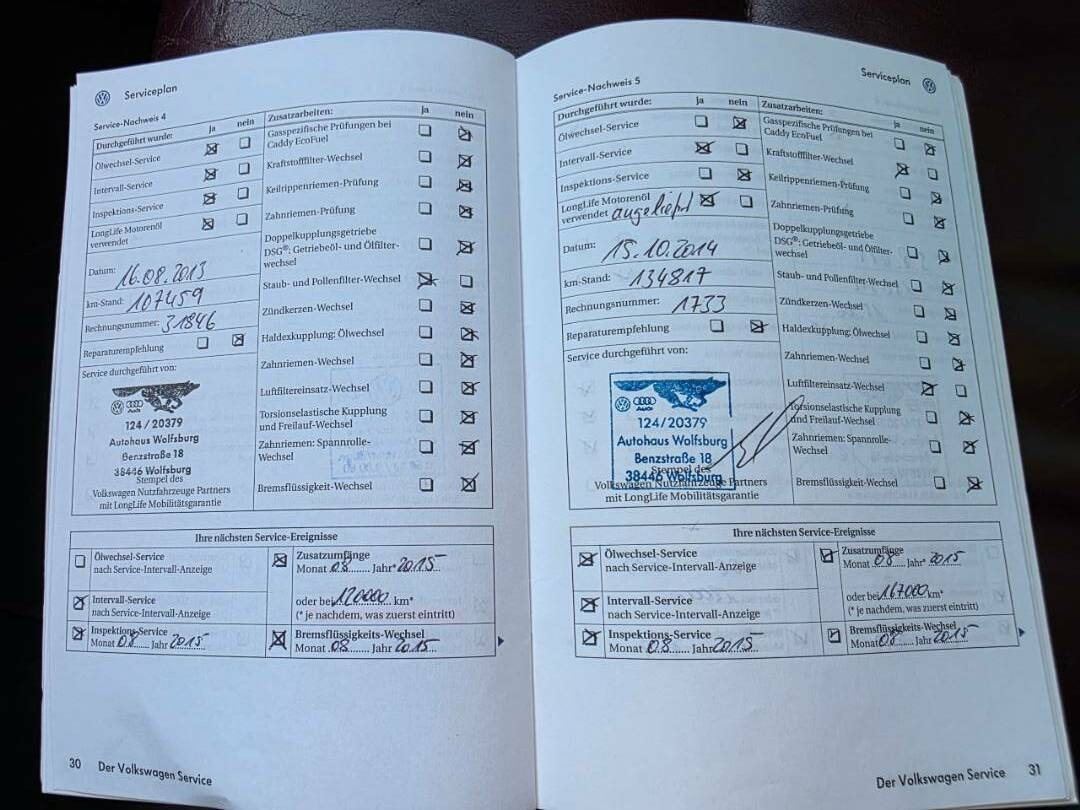 Serviceplan
Service-Nachweis 4
Durchgeführt wurde: ja nein
Ölwechsel-Service
Intervall-Service
Inspektions-Service
LongLife Motorenöl
verwendet
Datum: 16.08.2013
km-Stand: 107459
Rechnungsnummer: 31846
Reparaturempfehlung
Service durchgeführt von:
Audi
124/20379
Autohaus Wolfsburg
Benzstraße 18
38446 Wolfsburg
Stempel des
Volkswagen Nutzfahrzeuge Partners
mit LongLife Mobilitätsgarantie
Zusatzarbeiten: ja nein
Gasspezifische Prüfungen bei
Caddy EcoFuel
Kraftstofffilter-Wechsel
Keilrippenriemen-Prüfung
Zahnriemen-Prüfung
Doppelkupplungsgetriebe
DSG®: Getriebeöl- und Ölfilter-
wechsel
Staub- und Pollenfilter-Wechsel
Zündkerzen-Wechsel
Haldexkupplung: Ölwechsel
Zahnriemen-Wechsel
Luftfiltereinsatz-Wechsel
Torsionselastische Kupplung
und Freilauf-Wechsel
Zahnriemen: Spannrolle-
Wechsel
Bremsflüssigkeit-Wechsel
Ihre nächsten Service-Ereignisse
Ölwechsel-Service
nach Service-Intervall-Anzeige
Intervall-Service
nach Service-Intervall-Anzeige
Inspektions-Service
Monat 08 Jahr 2015
Zusatzumfänge
Monat 08 Jahr* 2015
oder bei 120000 km*
(* je nachdem, was zuerst eintritt)
Bremsflüssigkeits-Wechsel
Monat 08 Jahr 2015
30 Der Volkswagen Service
Serviceplan
Service-Nachweis 5
Durchgeführt wurde: ja nein
Ölwechsel-Service
Intervall-Service
Inspektions-Service
LongLife Motorenöl
verwendet angeliefert
Datum: 15.10.2014
km-Stand: 134817
Rechnungsnummer: 1733
Reparaturempfehlung
Service durchgeführt von:
Audi
124/20379
Autohaus Wolfsburg
Benzstraße 18
38446 Wolfsburg
Stempel des
Volkswagen Nutzfahrzeuge Partners
mit LongLife Mobilitätsgarantie
Zusatzarbeiten: ja nein
Gasspezifische Prüfungen bei
Caddy EcoFuel
Kraftstofffilter-Wechsel
Keilrippenriemen-Prüfung
Zahnriemen-Prüfung
Doppelkupplungsgetriebe
DSG®: Getriebeöl- und Ölfilter-
wechsel
Staub- und Pollenfilter-Wechsel
Zündkerzen-Wechsel
Haldexkupplung: Ölwechsel
Zahnriemen-Wechsel
Luftfiltereinsatz-Wechsel
Torsionselastische Kupplung
und Freilauf-Wechsel
Zahnriemen: Spannrolle-
Wechsel
Bremsflüssigkeit-Wechsel
Ihre nächsten Service-Ereignisse
Ölwechsel-Service
nach Service-Intervall-Anzeige
Intervall-Service
nach Service-Intervall-Anzeige
Inspektions-Service
Monat 08 Jahr 2015
Zusatzumfänge
Monat 08 Jahr* 2015
oder bei 167000 km*
(* je nachdem, was zuerst eintritt)
Bremsflüssigkeits-Wechsel
Monat 08 Jahr 2015
Der Volkswagen Service 31